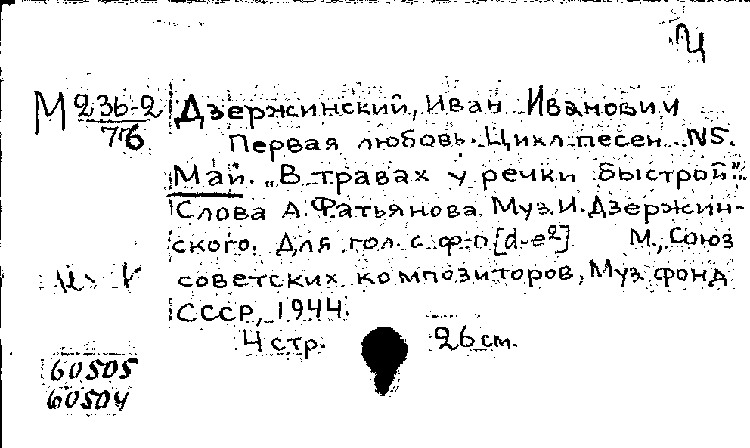 Ч
М 236-2
76
Дзержинский, Иван Иванович
Первая любовь. Цикл песен. N5.
Май. „В травах у речки быстрой".
Слова А. Фатьянова. Муз. И. Дзержин-
ского. Для гол. с ф-п [d-e²] М., Союз
советских композиторов, Муз. фонд
СССР, 1944.
4 стр. 26 см.
60505
60504